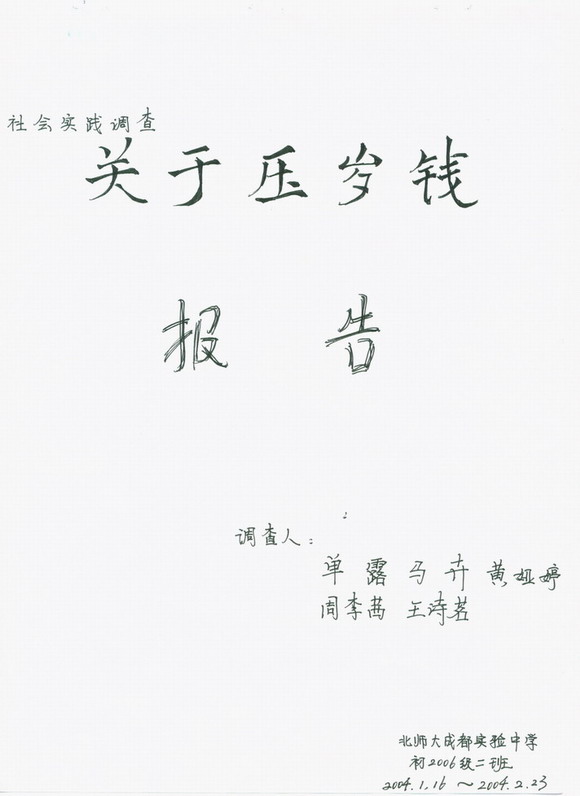 社会实践调查
关于压岁钱
报 告
调查人：
单露 马卉 黄娅婷
周李茜 王诗茗
北师大成都实验中学
初2006级二班
2004.1.16 ～2004.2.23